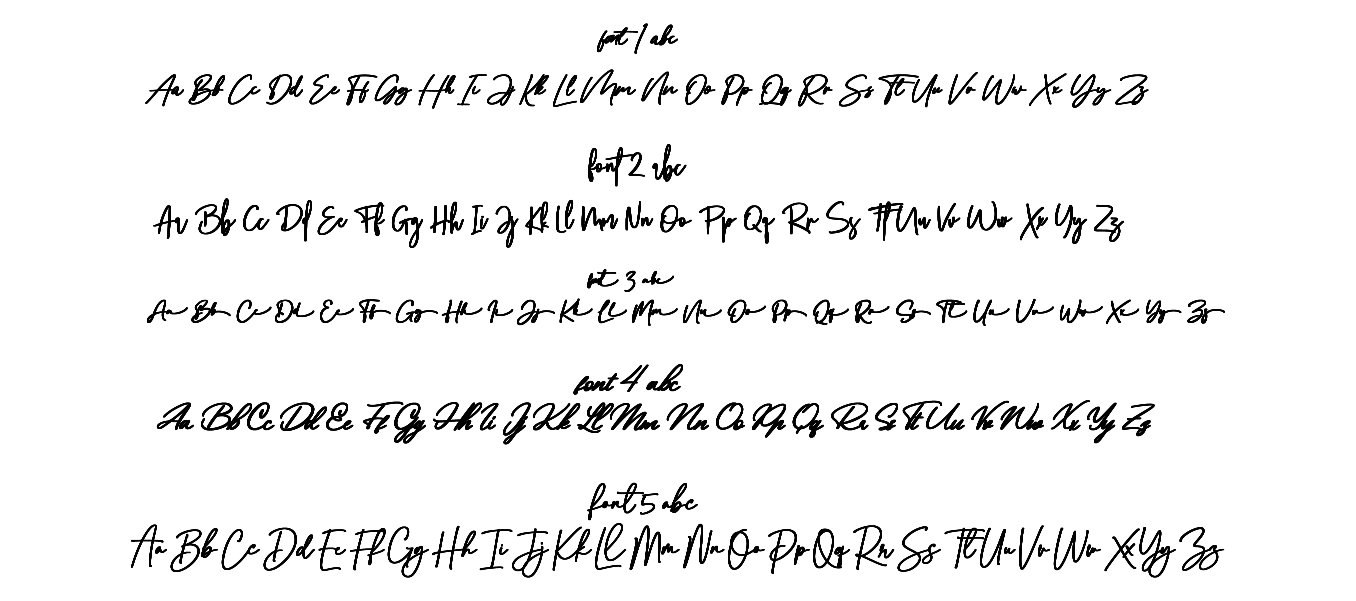 font 1 abc
Aa Bb Cc Dd Ee Ff Gg Hh Ii Jj Kk Ll Mm Nn Oo Pp Qq Rr Ss Tt Uu Vv Ww Xx Yy Zz
font 2 abc
Aa Bb Cc Dd Ee Ff Gg Hh Ii Jj Kk Ll Mm Nn Oo Pp Qq Rr Ss Tt Uu Vv Ww Xx Yy Zz
font 3 abc
Aa Bb Cc Dd Ee Ff Gg Hh Ii Jj Kk Ll Mm Nn Oo Pp Qq Rr Ss Tt Uu Vv Ww Xx Yy Zz
font 4 abc
Aa Bb Cc Dd Ee Ff Gg Hh Ii Jj Kk Ll Mm Nn Oo Pp Qq Rr Ss Tt Uu Vv Ww Xx Yy Zz
font 5 abc
Aa Bb Cc Dd Ee Ff Gg Hh Ii Jj Kk Ll Mm Nn Oo Pp Qq Rr Ss Tt Uu Vv Ww Xx Yy Zz